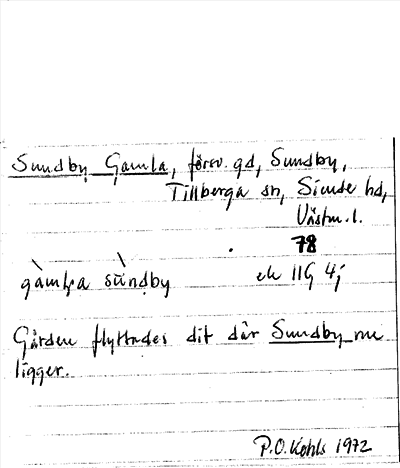 Sundby, Gamla, försv. gd, Sundby,
Tillberga sn, Siende hd,
Västm. l.
78
gàmḷa sùndby ek 11G 4j
Gården flyttades dit där Sundby nu
ligger.
P.O. Kohls 1972